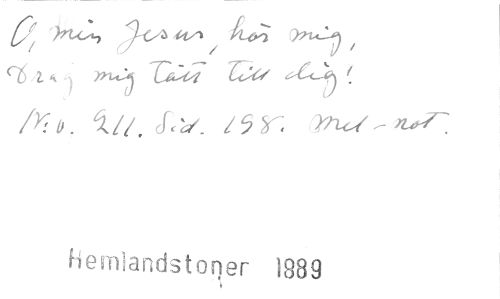 O, min Jesus, hör mig,
Drag mig tätt till dig!
N:o. 211. Sid. 198. Mel-not.
Hemlandstoner 1889